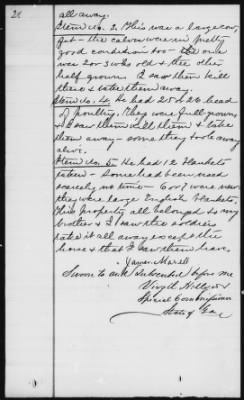 21
all away.
Item No. 3. This was a large cow,
fat - the calves were in pretty
good condition too - one
was 2 or 3 wks old & the other
half grown. I saw them kill
these & take them away.
Item No. 4. He had 25 or 26 head
of poultry. They were full grown
& I saw them kill them & take
them away - some they took away
alive.
Item No. 5. He had 12 blankets
taken - Some had been used
scarcely no time - 6 or 7 were new
they were large English blankets.
This property all belonged to my
brother & I saw the soldiers
take it all away except the
horse & that I saw them have.
James
Sworn to and Subscribed before me
Virgil Hillyer
Special Commissioner
State of Ga